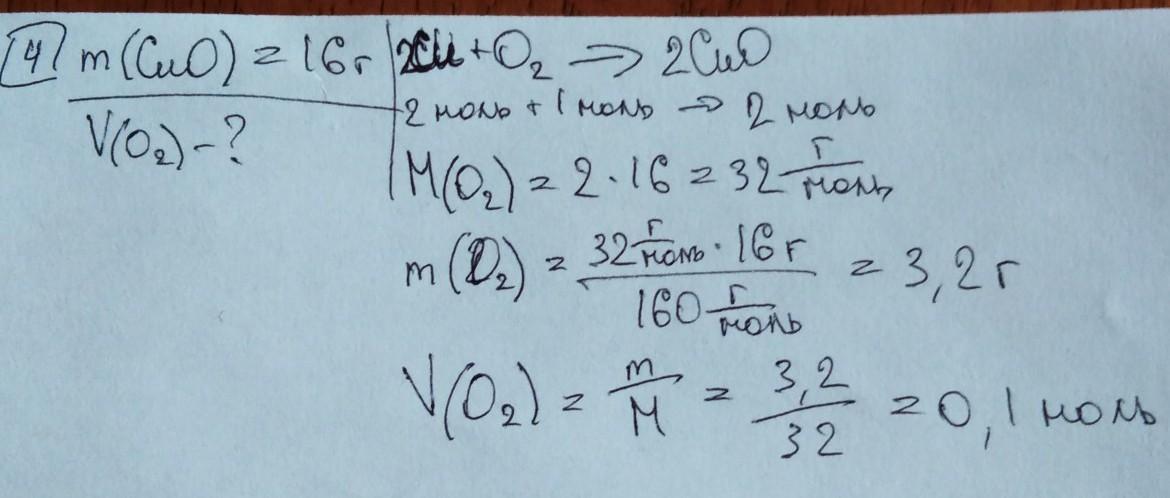 4 m(CuO) = 16г 2Cu + O₂ → 2CuO
V(O₂) - ? 2 моль + 1 моль → 2 моль
M(O₂) = 2 · 16 = 32 г/моль
m(O₂) = 32 г/моль · 16 г / 160 г/моль = 3,2 г
V(O₂) = m/M = 3,2/32 = 0,1 моль